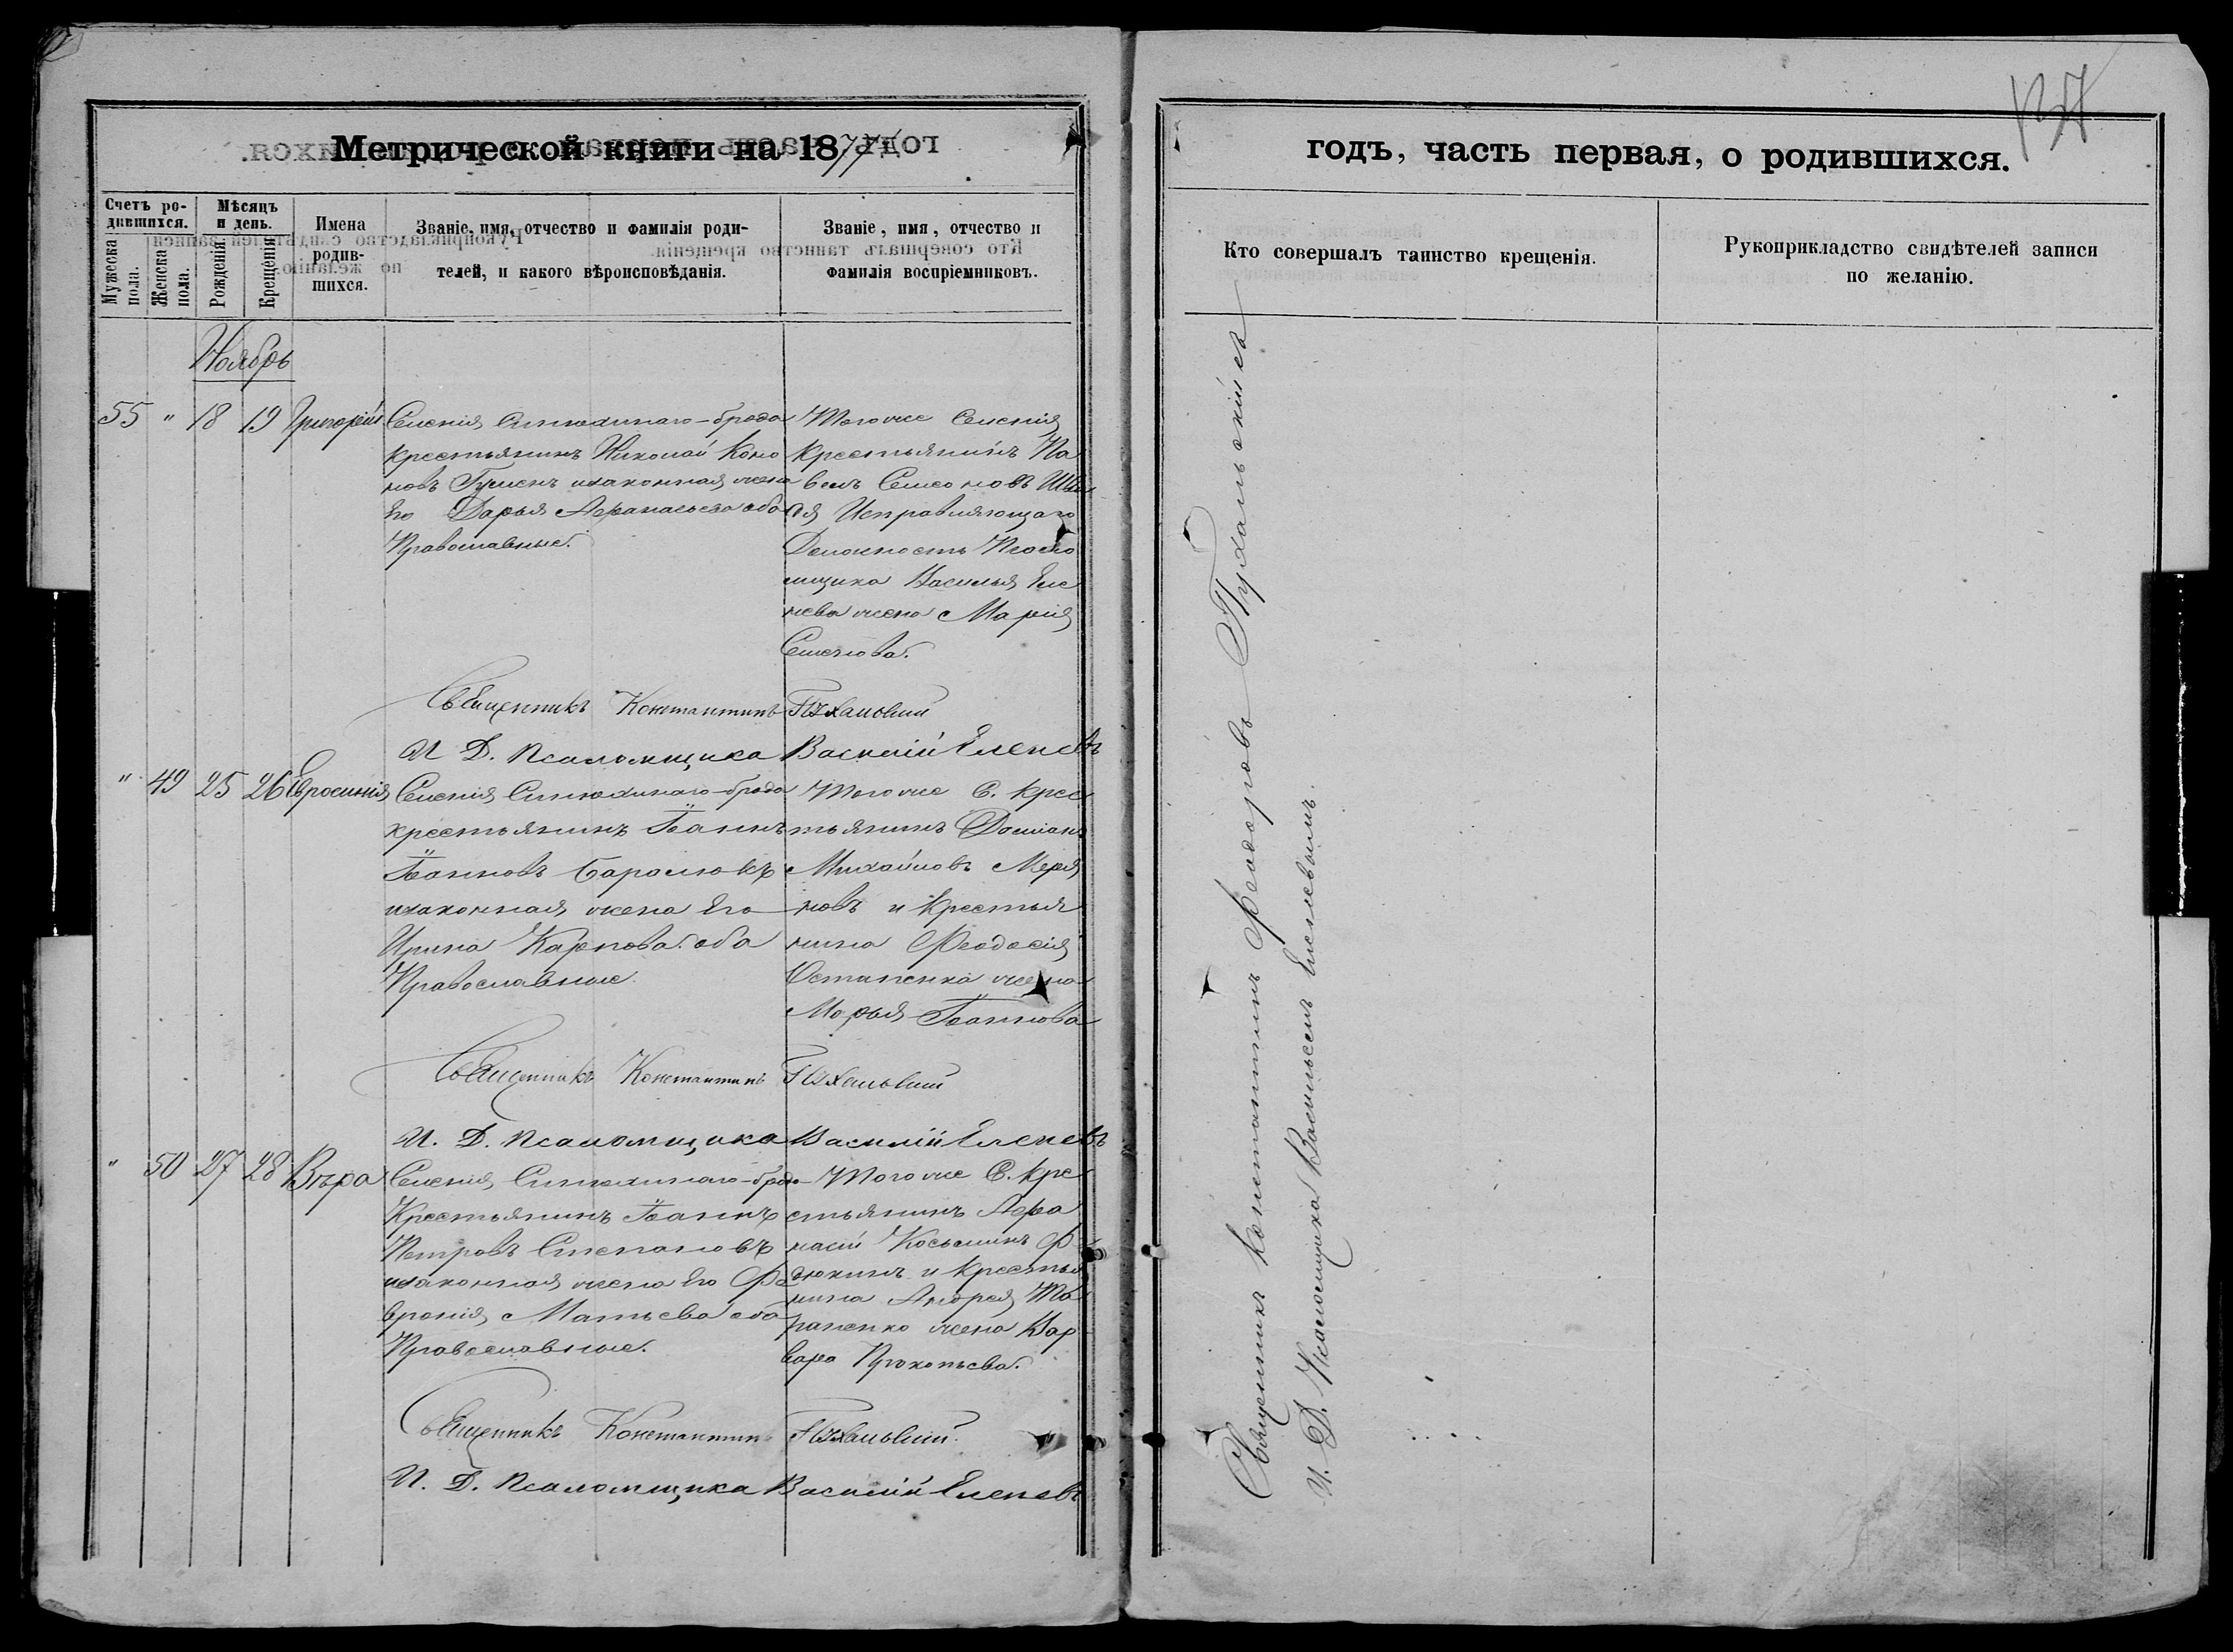 Метрической книги на 1877
годъ, часть первая, о родившихся.
137
Счетъ родившихся.
Мужеска пола.
Женска пола.
Мѣсяцъ и день.
Рожденія.
Крещенія.
Имена родившихся.
Званіе, имя, отчество и фамилія родителей, и какого вѣроисповѣданія.
Званіе, имя, отчество и фамилія воспріемниковъ.
Кто совершалъ таинство крещенія.
Рукоприкладство свидѣтелей записи по желанію.
Ноябрь
55 " 18 19 Григорій
Селенія Синюхинаго-брода
крестьянинъ Николай Коно
новъ изаконная жена
Его Дарья Афанасьева оба
Православные.
Тогоже Селенія
Крестьянинъ Па
велъ Семеновъ
Исправляющаго
Должность Псало
мщика Василья Еле
нева жена Марія
Семенова.
Священникъ Константинъ Пухальскій
И. Д. Псаломщика Василій Еленевъ
" 49 25 26 Евросинія
Селенія Синюхинаго-брода
крестьянинъ Іоаннъ
Іоанновъ
изаконная жена Его
Ирина Карпова оба
Православные
Тогоже С. крес
тьянинъ Доміанъ
Михайловъ Меря
новъ и Крестья
нина Феодосія
Остапенка жена
Марья Іоаннова
Священникъ Константинъ Пухальскій
И. Д. Псаломщика Василій Еленевъ
" 50 27 28 Вѣра
Селенія Синюхинаго-брода
Крестьянинъ Іоаннъ
Петровъ Степановъ
изаконная жена Его Фе
вронія Матьева оба
Православные.
Тогоже С. кре
стьянинъ Афа
насій Косьминъ Ф
дюкинъ и Крестья
нина Андрея Та
раненко жена Вар
вара Прокопьева.
Священникъ Константинъ Пухальскій
И. Д. Псаломщика Василій Еленевъ
Священникъ Константинъ Феодоровъ Пухальскій съ
И. Д. Псаломщика Васильемъ Еленевымъ.